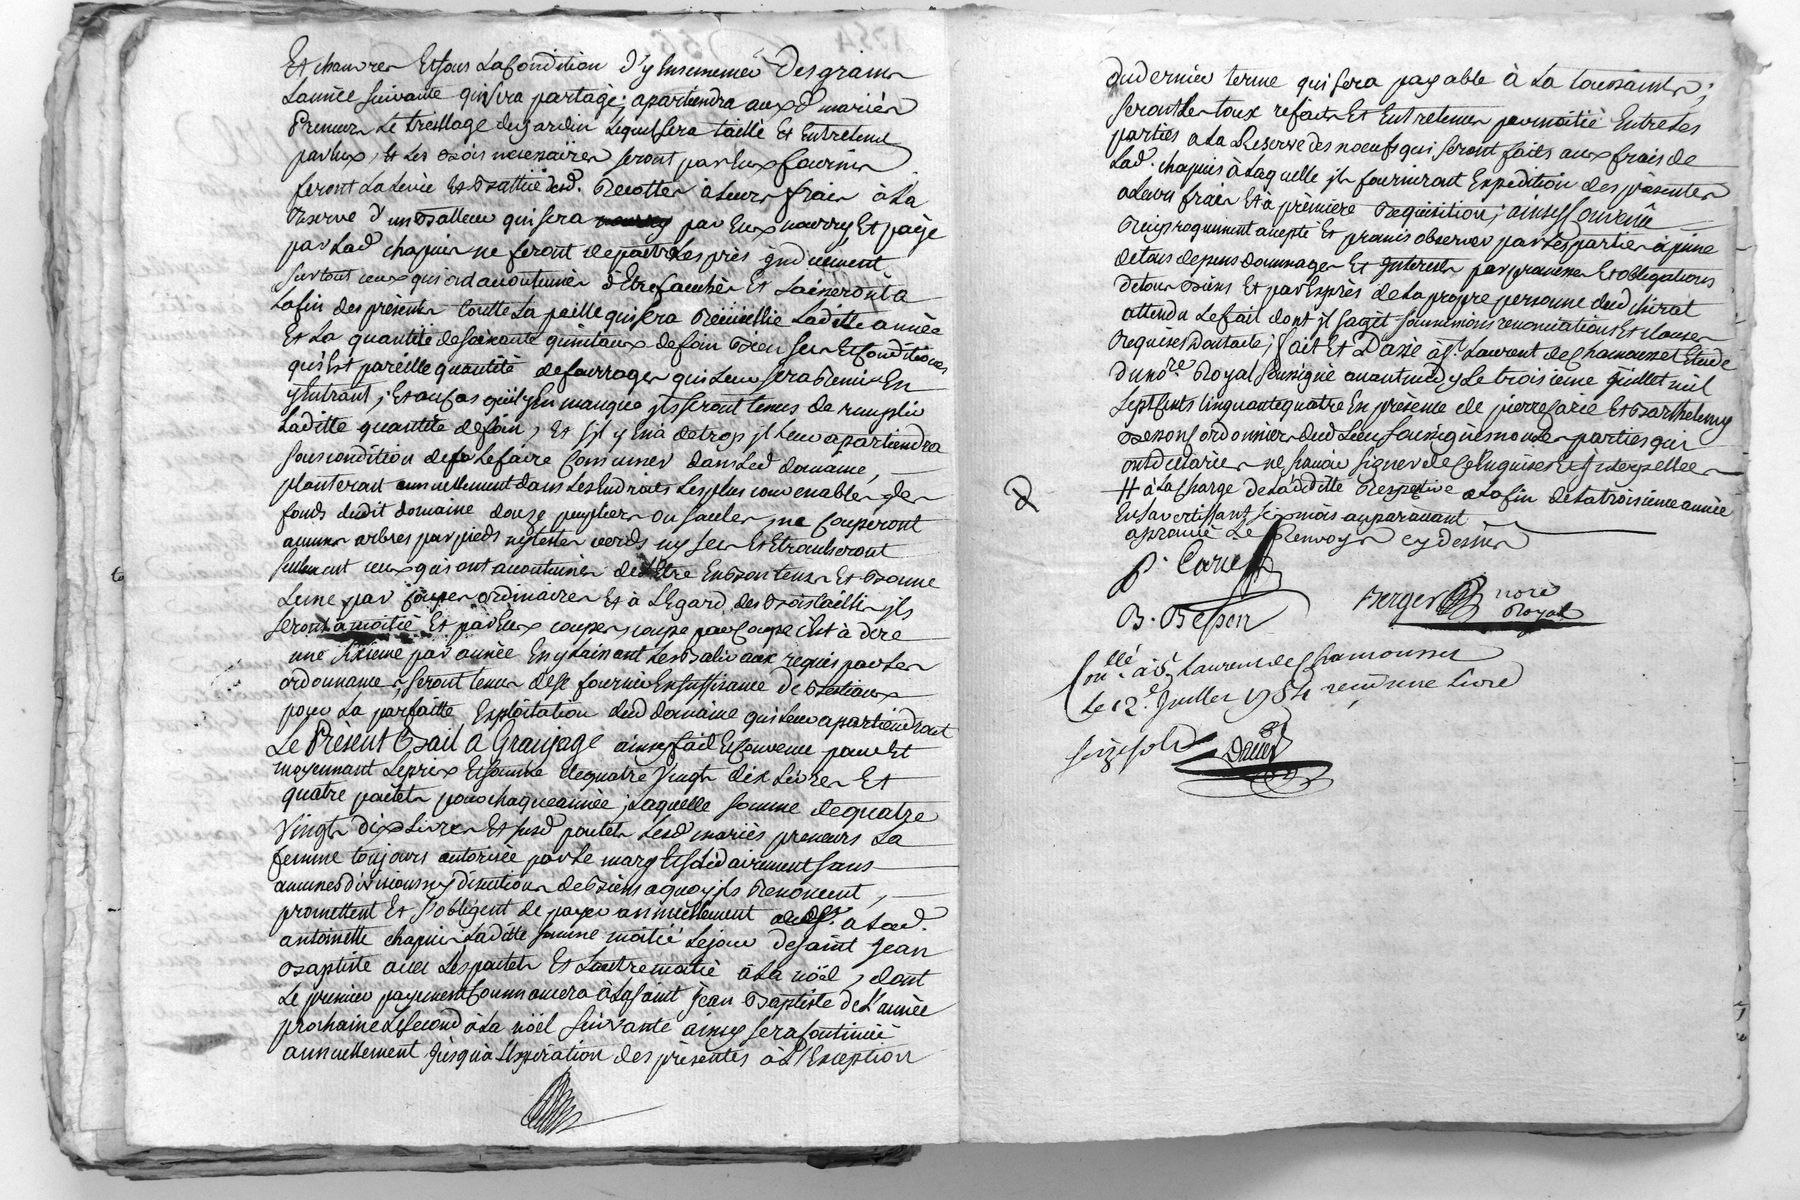 Et chanvres Et sous La Condition d'y Ensemencer Des grains
L'année suivante qui sera partagé; apartiendra aux d. mariés
Preneurs Le treillage du jardin Lequel sera taillé Et Entretenu
par Eux, Et Les Bois necessaires seront par Eux fournis
feront La Levée Et Battue desd. Recoltes à Leurs frais à La
Reserve d'un Batteur qui sera par Eux nourry Et payé
par Lad. chapuis ne feront depaitre Les prés induement
surtout ceux qui ont acoutumés d'Etre fauchés Et Laisseront a
La fin des présentes toutte La paille qui sera Recueillie Laditte année
Et La quantité de soixante quintaux de foin Bien sec Et Conditionné
qu'Est pareille quantité de fourrages qui Leur sera Remis En
y Entrant, Et au Cas qu'il y En manque ils seront tenus de remplir
Laditte quantité de foin, Et s'il y En a de trop il Leur apartiendra
sous condition de Le faire Consumer dans Led. domaine,
planteront annuellement dans Les Endroits Les plus convenables des
fonds dudit domaine douze peupliers ou saules, ne Couperont
aucuns arbres par pieds ny testes verds ny secs Et Etroncheront
seulement ceux qui ont acoutumés de L'Etre En Bon tems Et Bonne
Lune par Coupes ordinaires Et à L'Egard des Bois taillis ils
seront a moitié Et par Eux coupés, coupe par Coupe c'est à dire
une sixieme par année En y Laissant Les Balivaux requis par Les
ordonnances, seront tenus de se fournir En suffisance de Bestiaux
pour La parfaitte Exploitation dud. domaine qui Leur apartiendront
Le Présent Bail a Grangeage ainsy fait Et Convenu pour Et
moyennant Le prix Et somme de quatre Vingts dix Livres Et
quatre poulets pour chaque année, Laquelle somme de quatre
Vingts dix Livres Et susd. poulets Lesd. mariés preneurs La
femme toujours autorisée par Le mary Et solidairement sans
aucunes divisions ny discutions de Biens a quoy ils Renoncent,
promettent Et s'obligent de payer annuellement a Lad.
antoinette chapuis Laditte somme moitié Le jour de saint Jean
Baptiste avec Les poulets Et L'autre moitié à La noël, dont
Le premier payement Commancera à La saint Jean Baptiste de L'année
prochaine Le second à La noël suivante ainsy sera Continué
annuellement jusqu'à L'Expiration des présentes à L'Exception
du dernier terme qui sera payable à La toussaints;
seront Les toux refaits Et Entretenus par moitié Entre Les
parties a La Reserve des noeufs qui seront faits aux frais de
Lad. chapuis à Laquelle ils fourniront Expedition des présentes
a Leurs frais Et à premiere Requisition; ainsy Convenu
Reciproquement accepté Et promis observer par Les parties à peine
de tous depens dommages Et Interests par promesses Et obligations
De tous Biens Et par Exprès de La propre personne dud. chirat
attendu Le fait dont il s'agit soumissions renonciations Et clauses
Requises dont acte; fait Et Passé à St. Laurent de Chamousset Etude
du nore. Royal soussigné avant midy Le troisieme juillet mil
sept Cents Cinquante quatre En présence de pierre Carie Et Barthelemy
Besson Cordonniers dud. Lieu soussignés non Les parties qui
ont declarés ne sçavoir signer de Ce Enquises Et Interpellées
# à La Charge de La ditte Respective a La fin de La troisieme année
En s'avertissant six mois auparavant
aprouvé Le Renvoy cy dessus
P. Carie
B. Besson
Berger nore
Royal
Conllé. à St. Laurent de Chamousset
Le 12e. Juillet 1754 reçu une Livre
seize sols